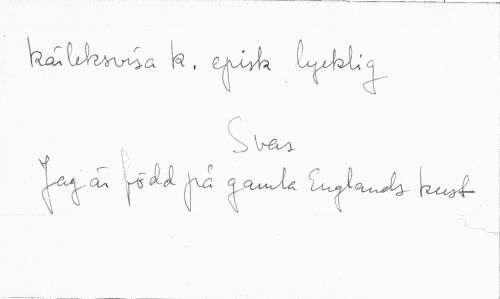 kärleksvisa k. episk lycklig
Svar
Jag är född på gamla Englands kust